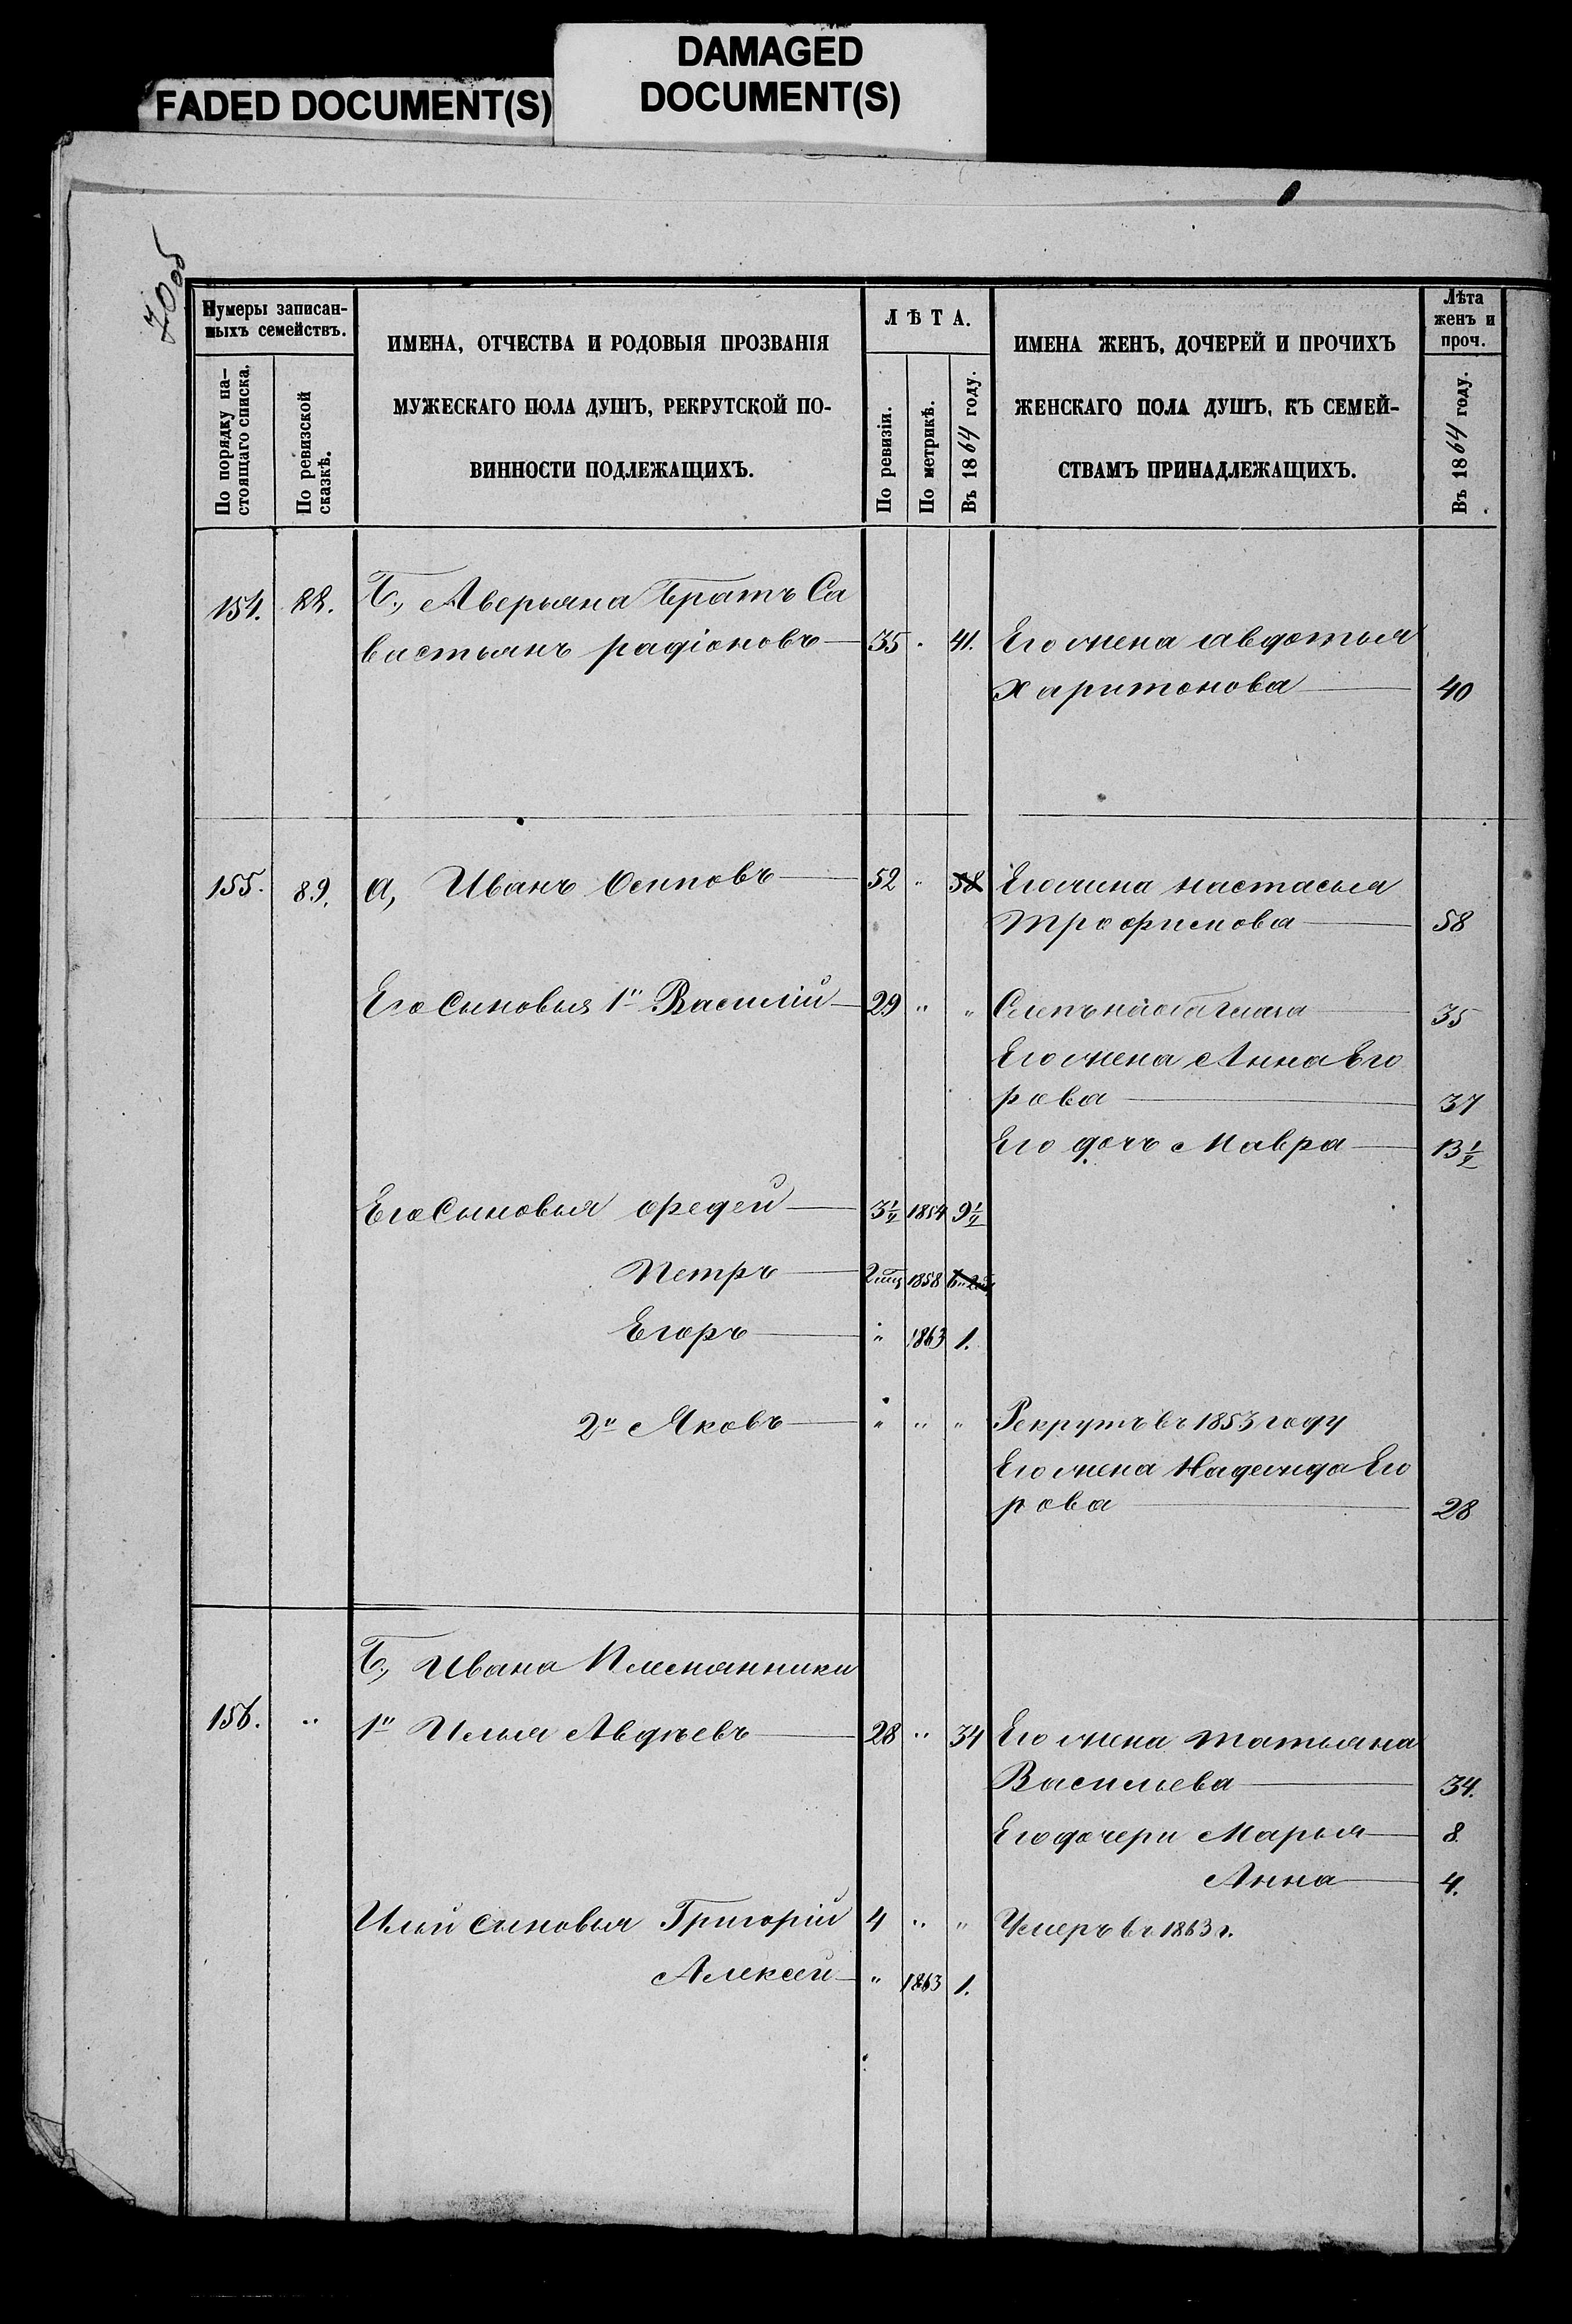 FADED DOCUMENT(S)
DAMAGED
DOCUMENT(S)
70об
Нумеры записан-
ныхъ семействъ.
По порядку на-
стоящаго списка.
По ревизской
сказкѣ.
ИМЕНА, ОТЧЕСТВА И РОДОВЫЯ ПРОЗВАНІЯ
МУЖЕСКАГО ПОЛА ДУШЪ, РЕКРУТСКОЙ ПО-
ВИННОСТИ ПОДЛЕЖАЩИХЪ.
ЛѢТА.
По ревизіи.
По метрикѣ.
Въ 1864 году.
ИМЕНА ЖЕНЪ, ДОЧЕРЕЙ И ПРОЧИХЪ
ЖЕНСКАГО ПОЛА ДУШЪ, КЪ СЕМЕЙ-
СТВАМЪ ПРИНАДЛЕЖАЩИХЪ.
Лѣта
женъ и
проч.
Въ 1864 году.
154. 88. Б, Аверьяна Братъ Са
вастьянъ радіоновъ 35 . 41. Его жена авдотья
Харитонова 40
155. 89. а, Иванъ Осиповъ 52 " 58 Его жена настасья
Трофимова 58
Его Сыновья 1й Василій 29 " " 35
Его жена Анна Его
рова 37
Его дочь Мавра 13½
Его Сыновья Федей 3½ 1854 9½
Петръ 1858
Егоръ " 1863 1.
2й Яковъ " " " Рекрутъ въ 1853 году
Его жена Надежда Его
рова 28
Б, Ивана Племянники
156. " 1й Илья Авдѣевъ 28 " 34 Его жена татьяна
Васильева 34.
Его дочери Марья 8.
Анна 4.
Ильи сыновья Григорій 4 " " Умеръ въ 1863 г.
Алексей " 1863 1.